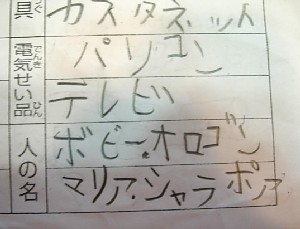 具 カスタネット
電気せい品 パソコン
テレビ
人の名 ボビー・オロゴン
マリア・シャラポア